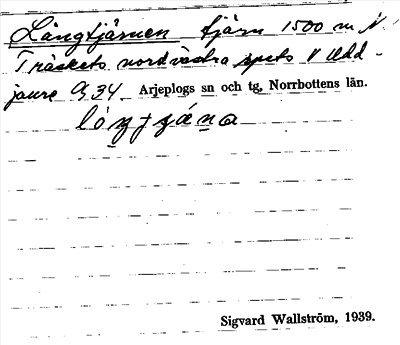 Långtjärnen tjärn 1500 m N.
Träskets nordvästra spets V Udd-
jaure 9,34 Arjeplogs sn och tg, Norrbottens län.
Sigvard Wallström, 1939.